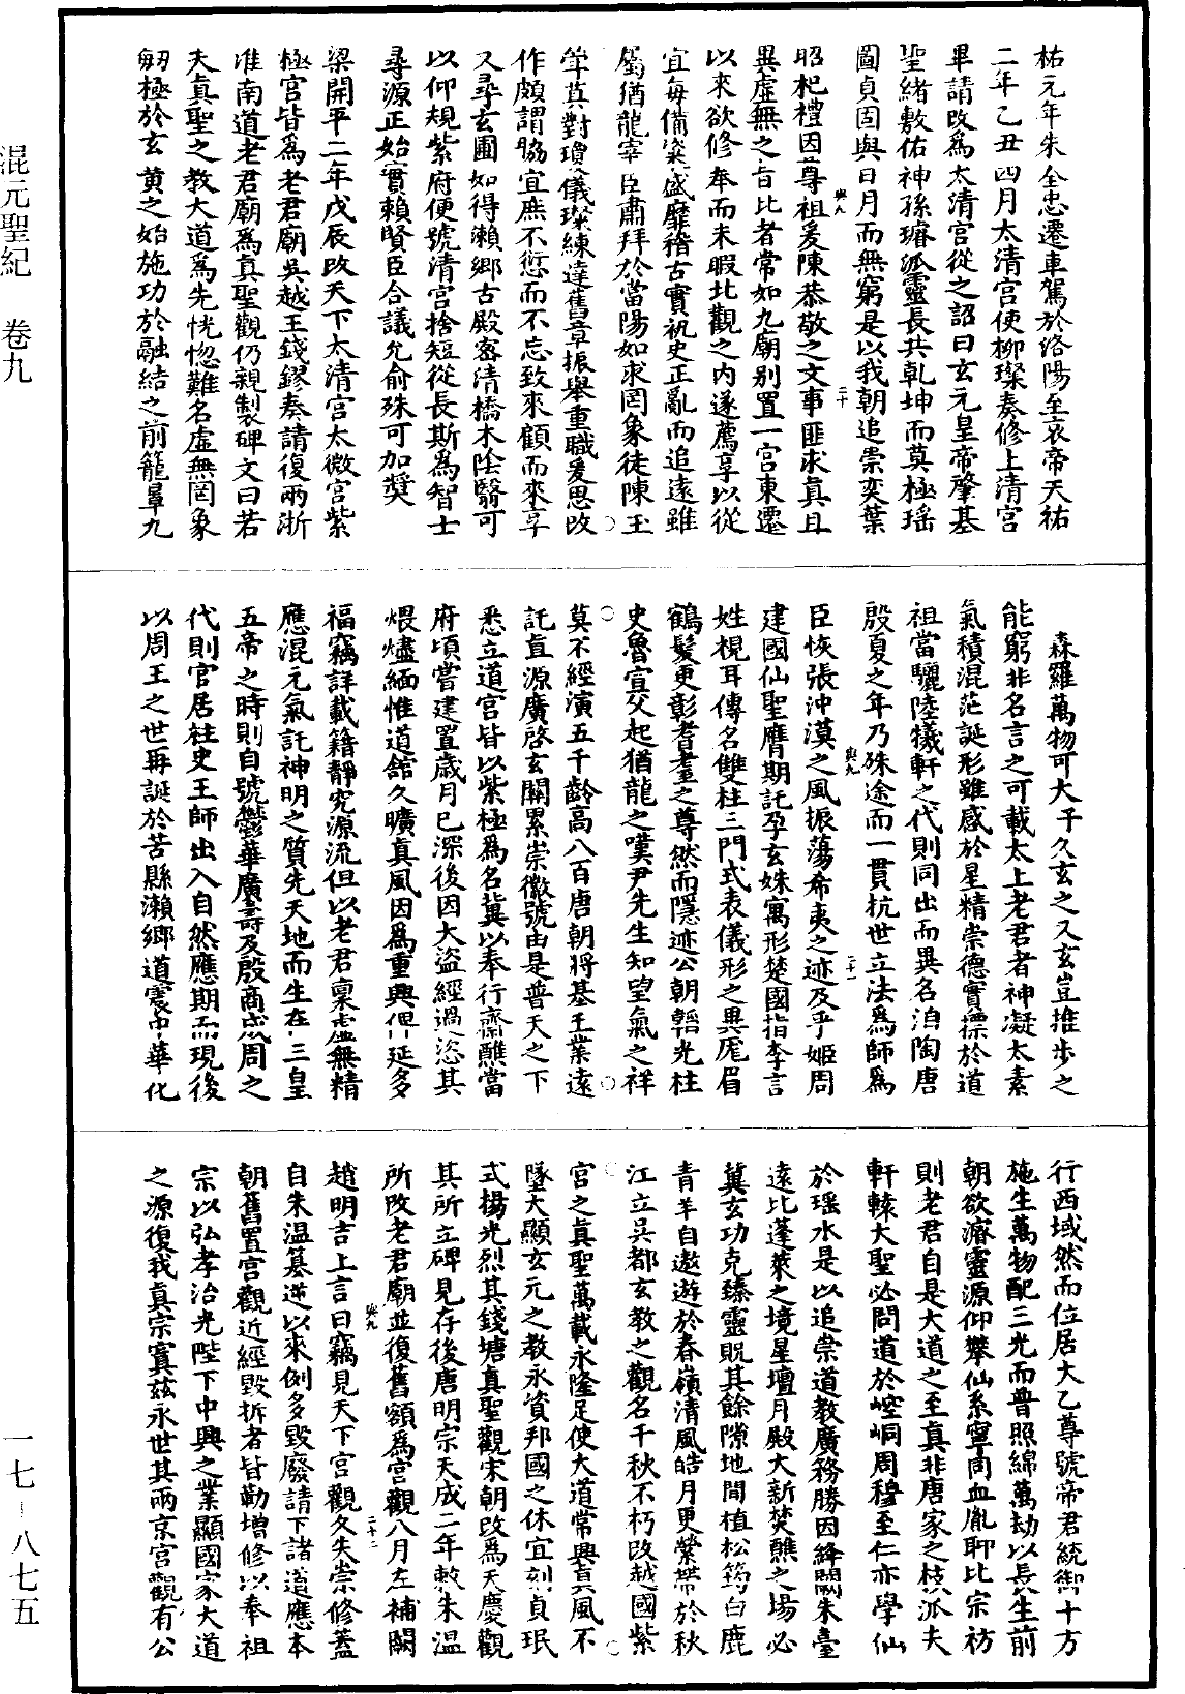 混元聖紀　卷九
一七－八七五
祐元年朱全忠遷車駕於洛陽至哀帝天祐
二年乙丑四月太清宮使柳璨奏修上清宮
畢請改爲太清宮從之詔曰玄元皇帝肇基
聖緒敷佑神孫璿派靈長共乹坤而莫極瑶
圖貞固與日月而無窮是以我朝追崇奕葉
昭杞禮因尊祖爰陳恭敬之文事匪求真且
異虛無之旨比者常如九廟别置一宮東遷
以來欲修奉而未暇北觀之内遂薦享以從
宜每備粢盛靡稽古實祝史正亂而追遠雖
屬猶龍宰臣肅拜於當陽如求罔象徒陳玉
䇶莫對瓊儀璨練達舊章振舉重職爰思改
作頗謂脇宜庶不愆而不忘致來顧而來享
又尋玄圃如得瀨鄉古殿密清橋木陰翳可
以仰規紫府便號清宮捨短從長斯爲智士
尋源正始實賴賢臣合議允俞殊可加奬
梁開平二年戊辰改天下太清宮太微宮紫
極宮皆爲老君廟吳越王錢鏐奏請復兩浙
淮南道老君廟爲真聖觀仍親製碑文曰若
夫真聖之教大道爲先恍惚難名虛無罔象
剏極於玄黄之始施功於融結之前籠羣九
森羅萬物可大于久玄之又玄豈推步之
能窮非名言之可載太上老君者神凝太素
氣積混茫誕形雖感於星精崇德實標於道
祖當驪陸犧軒之代則同出而異名洎陶唐
殷夏之年乃殊途而一貫抗世立法爲師爲
臣恢張沖漠之風振蕩希夷之迹及乎姬周
建國仙聖膺期託孕玄姝寓形楚國指李言
姓視耳傳名雙柱三門式表儀形之異厖眉
鶴髮更彰耆耋之尊然而隱迹公朝韜光柱
史魯宣父起猶龍之嘆尹先生知望氣之祥
莫不經演五千齡高八百唐朝將基王業遠
託真源廣啓玄關累崇徽號由是普天之下
悉立道宮皆以紫極爲名冀以奉行齋醮當
府頃嘗建置歳月已深後因大盜經過恣其
煨燼緬惟道舘久曠真風因爲重興俾延多
福竊詳載籍靜究源流但以老君稟虛無精
應混元氣託神明之質先天地而生在三皇
五帝之時則自號鬱華廣壽及殷商成周之
代則官居柱史王師出入自然應期而現後
以周王之世再誕於苦縣瀨鄉道寰中華化
行西域然而位居大乙尊號帝君統御十方
施生萬物配三光而普照綿萬劫以長生前
朝欲濬靈源仰攀仙系寧同血胤聊比宗祊
則老君自是大道之至真非唐家之枝派夫
軒轅大聖必問道於崆峒周穆至仁亦學仙
於瑶水是以追崇道教廣務勝因絳闕朱臺
遠比蓬萊之境星壇月殿大新焚醮之場必
冀玄功克臻靈貺其餘隙地間植松筠白鹿
青羊自遨遊於春嶺清風皓月更縈帶於秋
江立吳都玄教之觀名千秋不朽改越國紫
宮之真聖萬載永隆足使大道常興真風不
墜大顯玄元之教永資邦國之休宜刻貞珉
式揚光烈其錢塘真聖觀宋朝改爲天慶觀
其所立碑見存後唐明宗天成二年敕朱温
所改老君廟並復舊額爲宮觀八月左補闕
趙明吉上言曰竊見天下宮觀久失崇修蓋
自朱温簒逆以來例多毁廢請下諸道應本
朝舊置宮觀近經毁拆者皆勒增修以奉祖
宗以弘孝治光陛下中興之業顯國家大道
之源復我真宗實兹永世其兩京宮觀有公